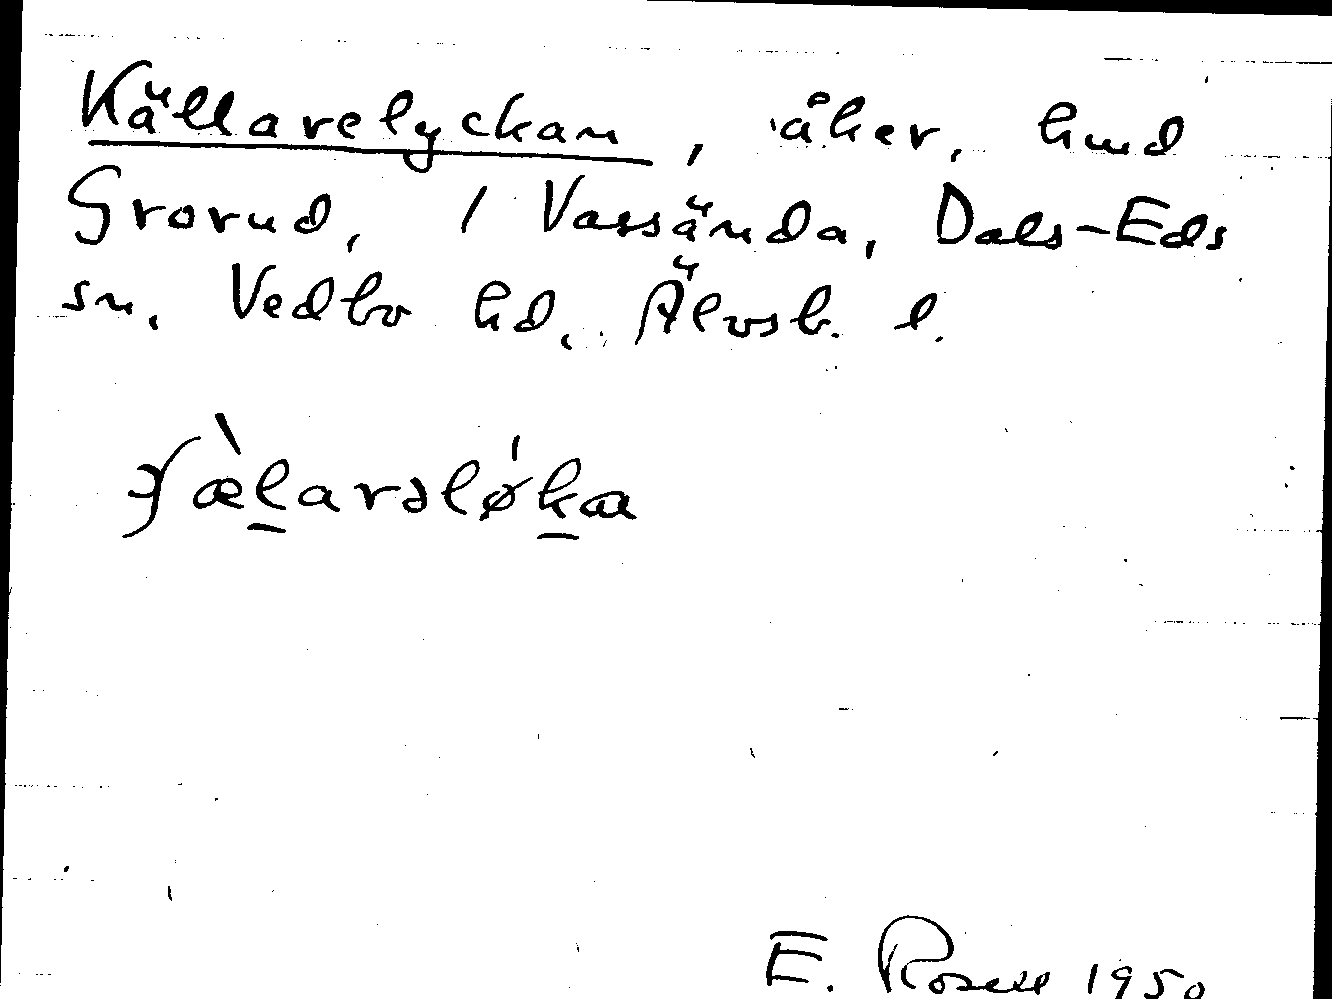 Källarelyckan, åker, hmd
Grorud, 1 Vassända, Dals-Eds
sn, Vedbo hd, Älvsb. l.
E. Rosell 1950